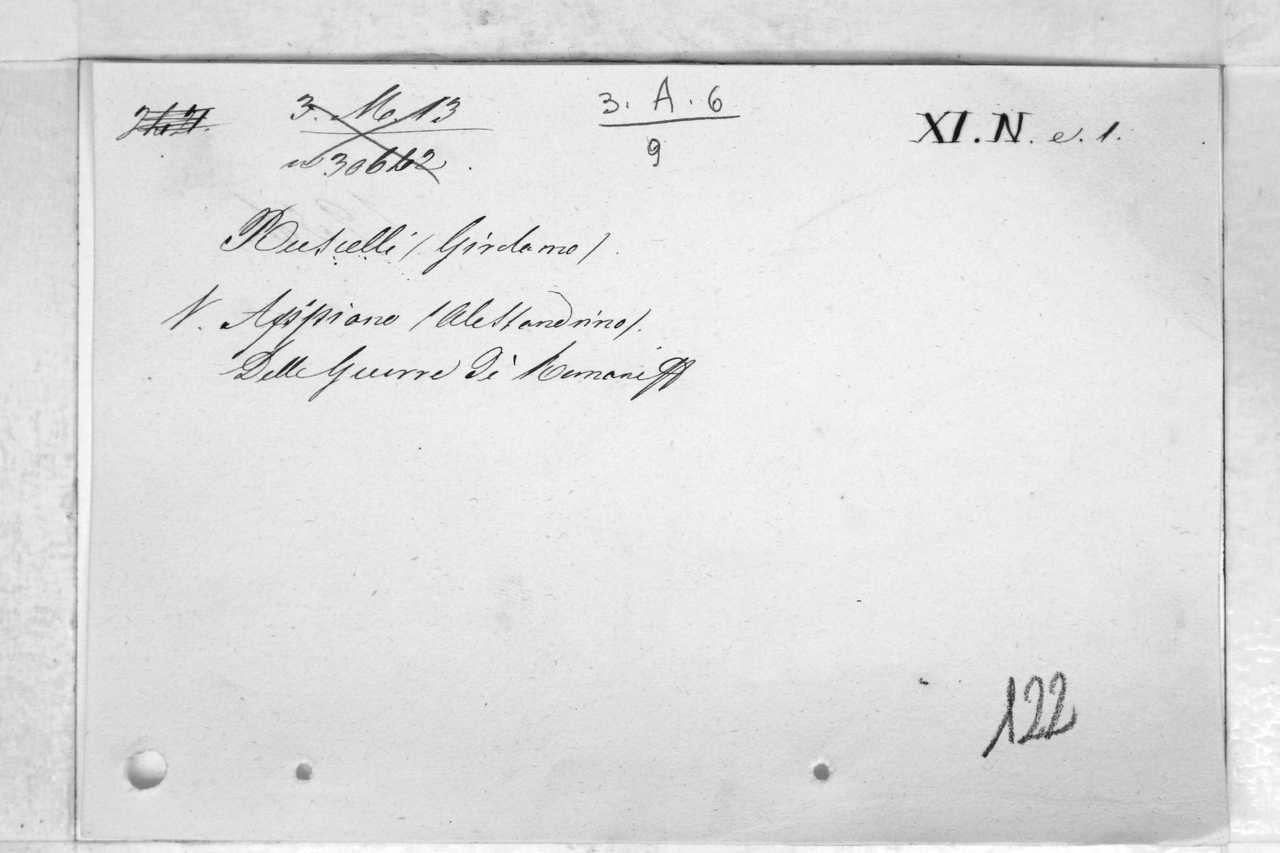 3. M. 13 3. A. 6 XI. N. e. 1.
n 30662 9
Ruscelli (Girolamo).
V. Appiano (Alessandrino).
Delle Guerre de' Romani
122